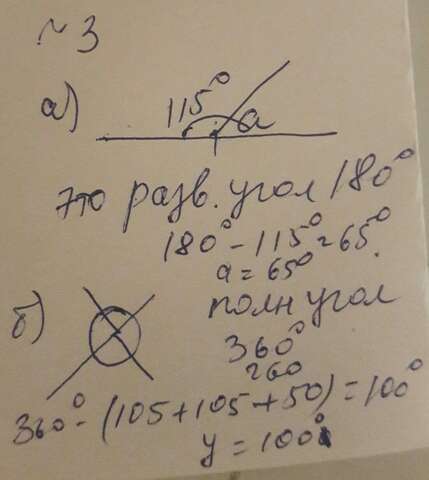 ~ 3
а) 115° a
это разв. угол 180°
180° - 115° = 65°.
a = 65°
б) полн угол
360°
360° - (105 + 105 + 50) = 100°
y = 100°